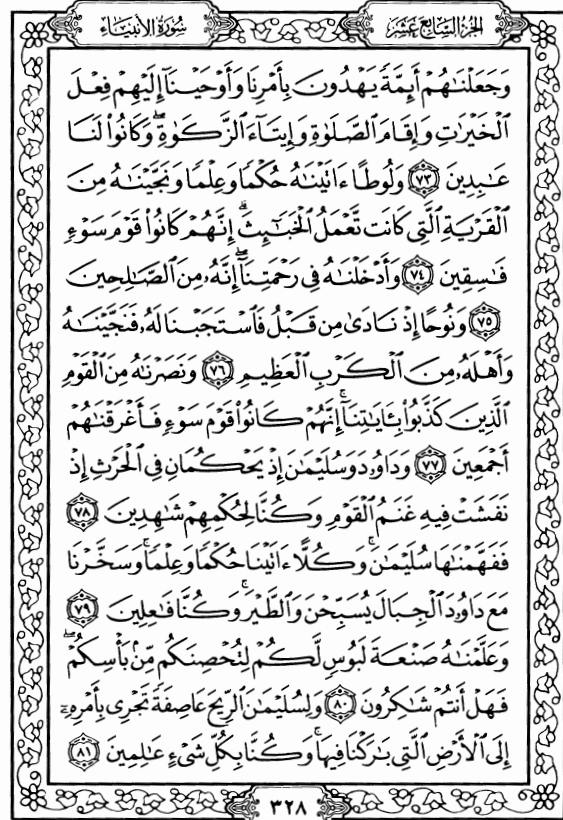 سُورَةُ الأَنبِيَاءِ
الجُزْءُ السَّابِعَ عَشَرَ
وَجَعَلْنَٰهُمْ أَئِمَّةً يَهْدُونَ بِأَمْرِنَا وَأَوْحَيْنَآ إِلَيْهِمْ فِعْلَ
ٱلْخَيْرَٰتِ وَإِقَامَ ٱلصَّلَوٰةِ وَإِيتَآءَ ٱلزَّكَوٰةِۖ وَكَانُوا۟ لَنَا
عَٰبِدِينَ ٧٣ وَلُوطًا ءَاتَيْنَٰهُ حُكْمًا وَعِلْمًا وَنَجَّيْنَٰهُ مِنَ
ٱلْقَرْيَةِ ٱلَّتِى كَانَت تَّعْمَلُ ٱلْخَبَٰٓئِثَۗ إِنَّهُمْ كَانُوا۟ قَوْمَ سَوْءٍ
فَٰسِقِينَ ٧٤ وَأَدْخَلْنَٰهُ فِى رَحْمَتِنَآۖ إِنَّهُۥ مِنَ ٱلصَّٰلِحِينَ
٧٥ وَنُوحًا إِذْ نَادَىٰ مِن قَبْلُ فَٱسْتَجَبْنَا لَهُۥ فَنَجَّيْنَٰهُ
وَأَهْلَهُۥ مِنَ ٱلْكَرْبِ ٱلْعَظِيمِ ٧٦ وَنَصَرْنَٰهُ مِنَ ٱلْقَوْمِ
ٱلَّذِينَ كَذَّبُوا۟ بِـَٔايَٰتِنَآۚ إِنَّهُمْ كَانُوا۟ قَوْمَ سَوْءٍ فَأَغْرَقْنَٰهُمْ
أَجْمَعِينَ ٧٧ وَدَاوُۥدَ وَسُلَيْمَٰنَ إِذْ يَحْكُمَانِ فِى ٱلْحَرْثِ إِذْ
نَفَشَتْ فِيهِ غَنَمُ ٱلْقَوْمِ وَكُنَّا لِحُكْمِهِمْ شَٰهِدِينَ ٧٨
فَفَهَّمْنَٰهَا سُلَيْمَٰنَۚ وَكُلًّا ءَاتَيْنَا حُكْمًا وَعِلْمًاۚ وَسَخَّرْنَا
مَعَ دَاوُۥدَ ٱلْجِبَالَ يُسَبِّحْنَ وَٱلطَّيْرَۚ وَكُنَّا فَٰعِلِينَ ٧٩
وَعَلَّمْنَٰهُ صَنْعَةَ لَبُوسٍ لَّكُمْ لِتُحْصِنَكُم مِّنۢ بَأْسِكُمْۖ
فَهَلْ أَنتُمْ شَٰكِرُونَ ٨٠ وَلِسُلَيْمَٰنَ ٱلرِّيحَ عَاصِفَةً تَجْرِى بِأَمْرِهِۦٓ
إِلَى ٱلْأَرْضِ ٱلَّتِى بَٰرَكْنَا فِيهَاۚ وَكُنَّا بِكُلِّ شَىْءٍ عَٰلِمِينَ ٨١
٣٢٨